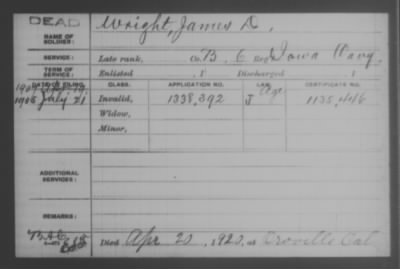 DEAD
Wright, James D.
NAME OF SOLDIER:
SERVICE: Late rank, Co. B, 6 Reg't Iowa Cavy,
TERM OF SERVICE: Enlisted , 1 Discharged , 1
DATE OF FILING. CLASS. APPLICATION NO. LAW. CERTIFICATE NO.
Age
1905 July 21 Invalid, 1338,392 J 1135,446
Widow,
Minor,
ADDITIONAL SERVICES:
REMARKS:
Died Apr 20, 1920, at Oroville Cal